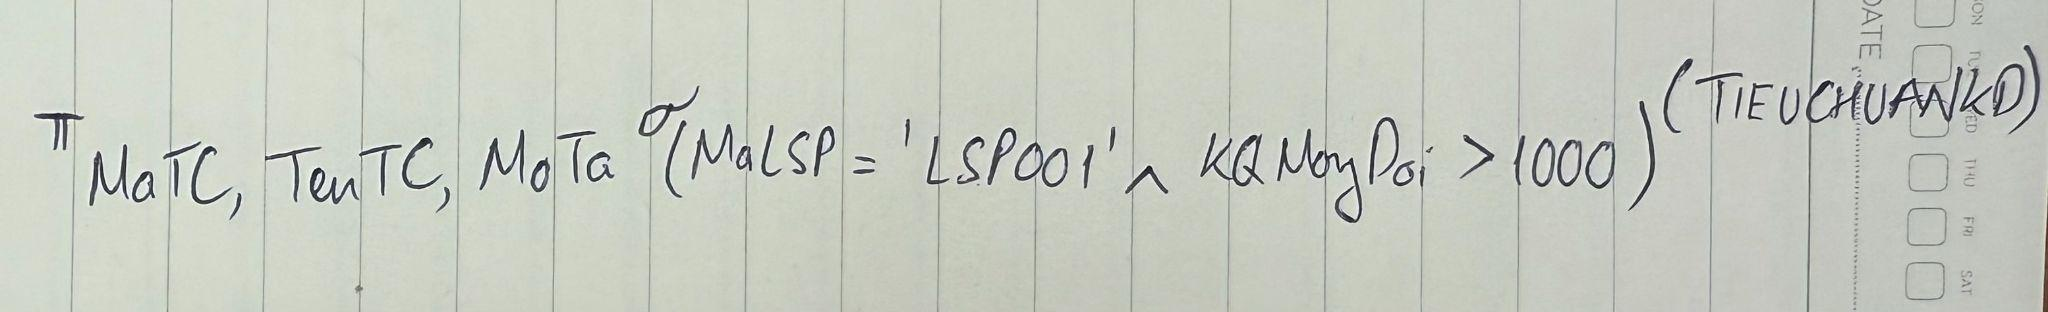 π MaTC, TenTC, MoTa σ (MaLSP = 'LSP001' ∧ KQMongDoi > 1000) (TIEUCHUANKD)
DATE
MON
TUE
WED
THU
FRI
SAT